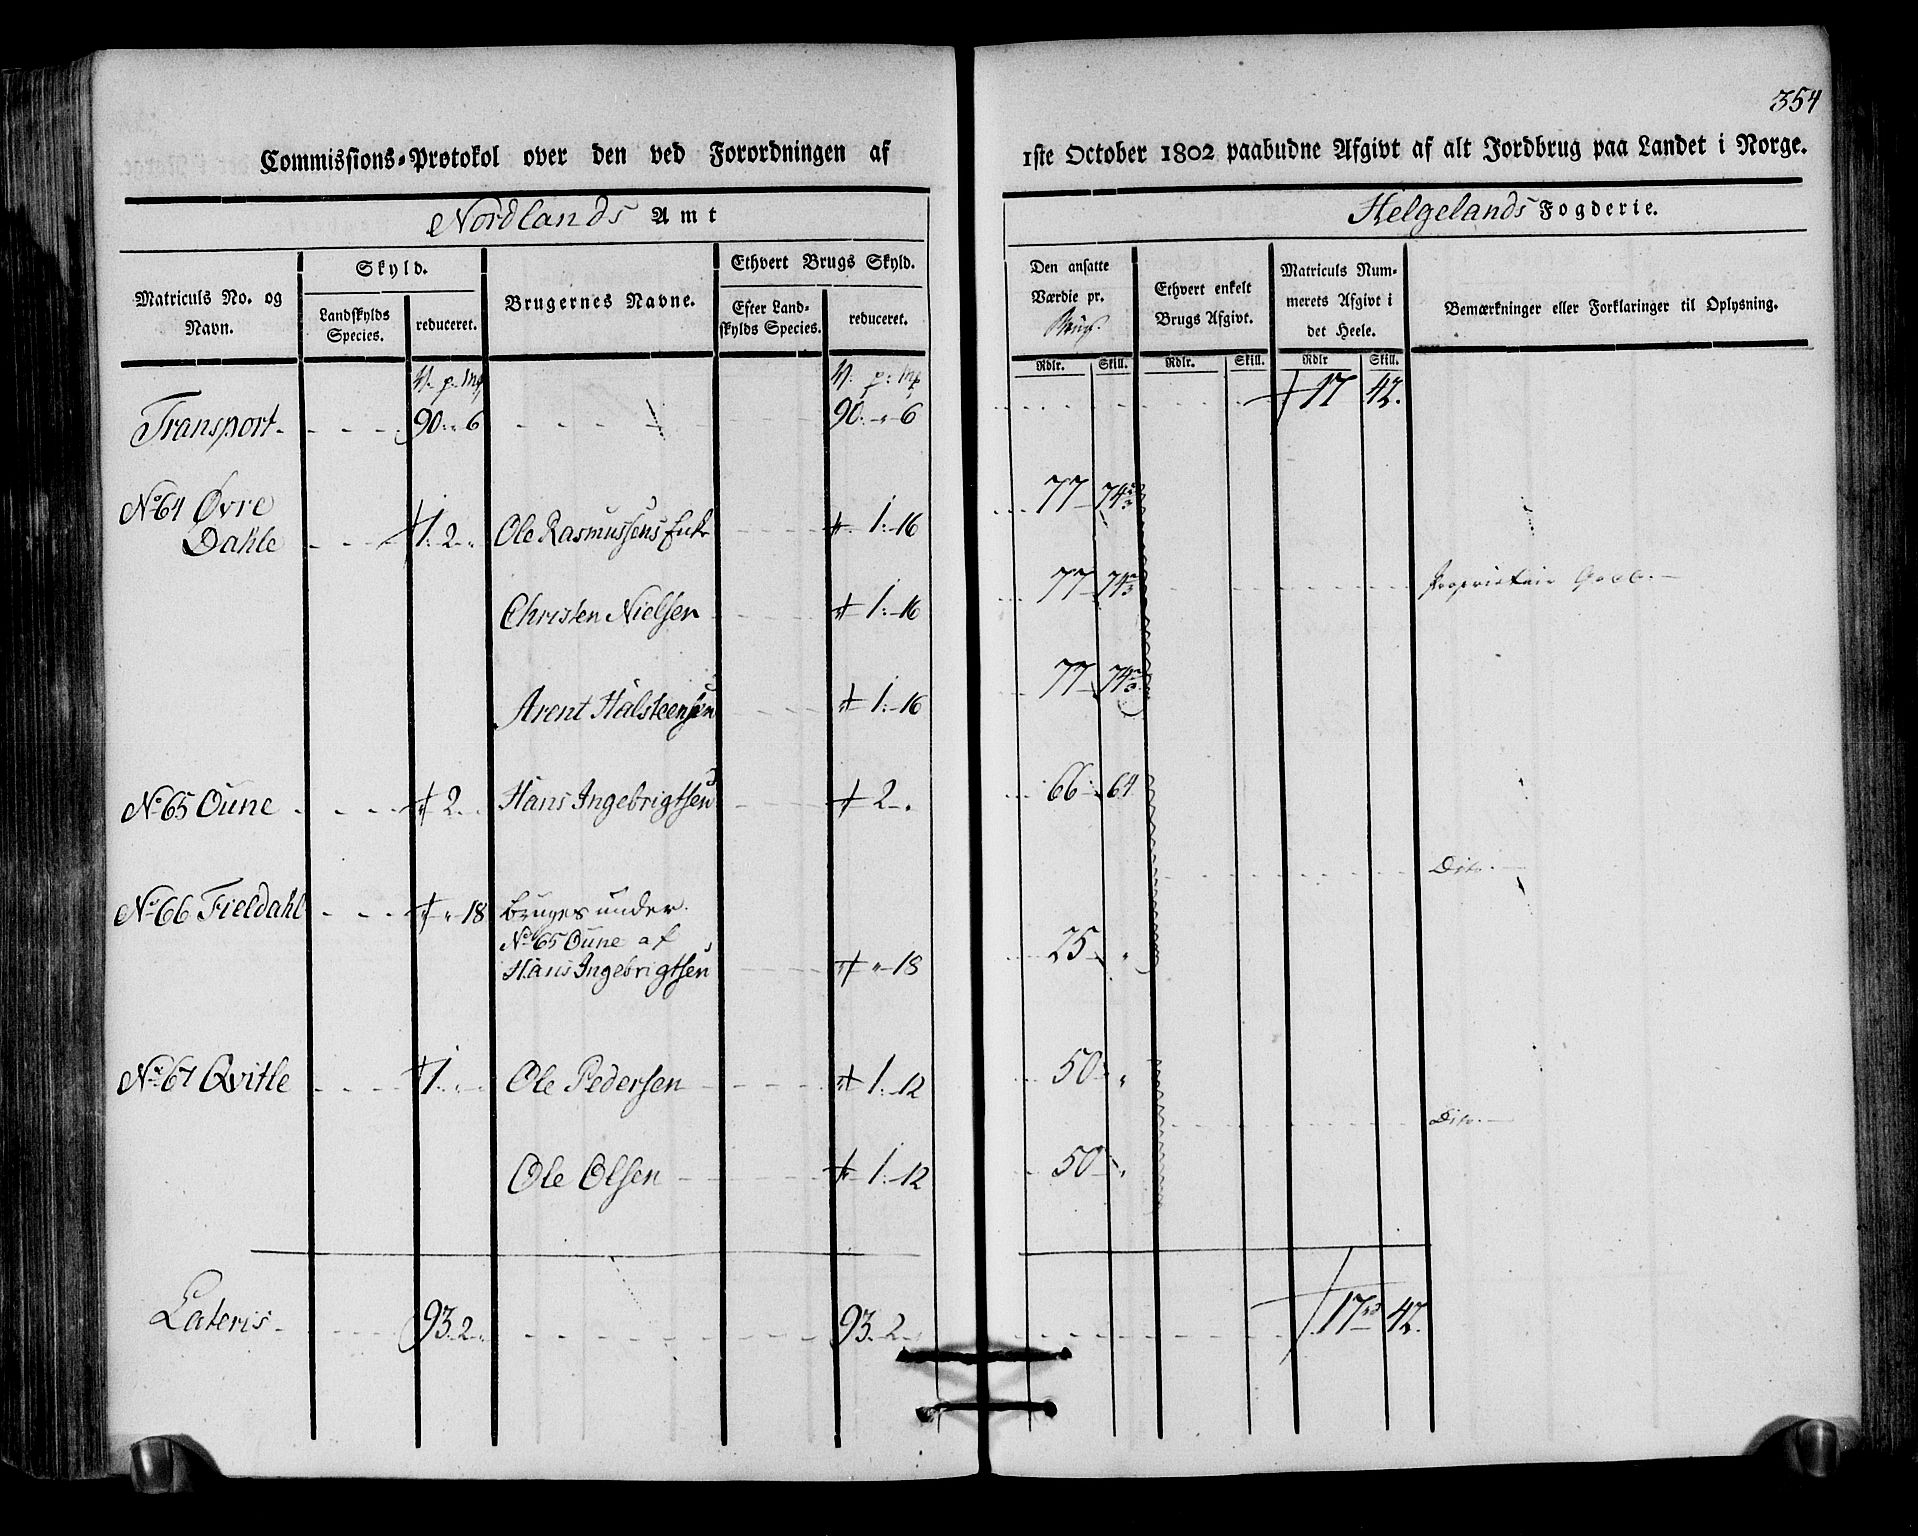 354
Commissions-Protokol over den ved Forordningen af 1ste October 1802 paabudne Afgivt af alt Jordbrug paa Landet i Norge.
Nordlands Amt
Helgelands Fogderie.
Matriculs No. og Navn.
Skyld.
Landskylds Species.
reduceret.
Brugernes Navne.
Ethvert Brugs Skyld.
Efter Landskylds Species.
reduceret.
Den ansatte Værdie pr. Brug.
Ethvert enkelt Brugs Afgivt.
Matriculs Nummerets Afgivt i det Heele.
Bemærkninger eller Forklaringer til Oplysning.
Rdlr. Skill. Rdlr. Skill. Rdlr Skill.
V. p. mk V. p. mk
Transport 90 " 6 90 " 6 17 42.
No 64 Øvre
Dahle 1. 2 " Ole Rasmussens Enke " 1. 16 77 74 2/3
Christen Nielsen " 1. 16 77 74 2/3
Proprietair
Arent Halsteensen " 1. 16 77 74 2/3
No 65 Oune " 2 " Hans Ingebrigtsen " 2 " 66 64
Dito.
No 66 Fieldahl " " 18 bruges under
No 65 Oune af
Hans Ingebrigtsen " " 18 25 "
No 67 Qvitle 1 " Ole Pedersen " 1. 12 50 "
Dito.
Ole Olsen " 1. 12 50 "
Lateris 93. 2 " 93. 2 " 17 rd 42.